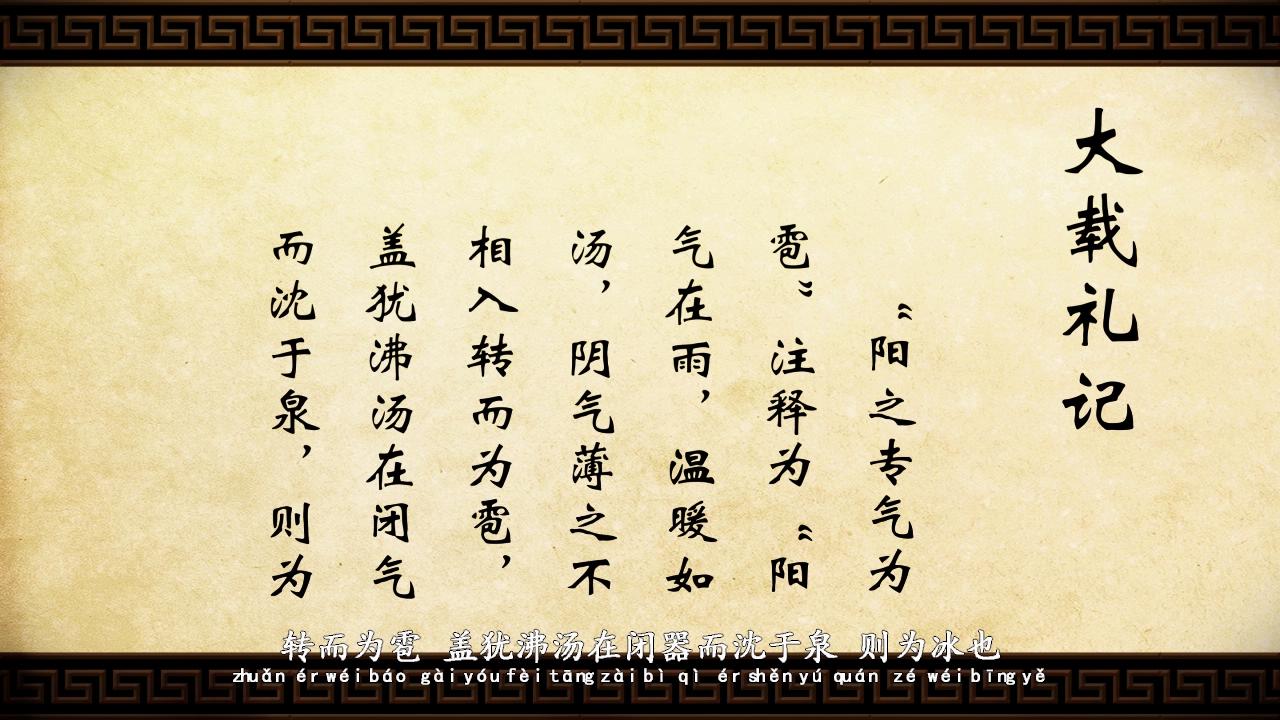 大载礼记
“阳之专气为
雹”注释为“阳
气在雨，温暖如
汤，阴气薄之不
相入转而为雹，
盖犹沸汤在闭气
而沈于泉，则为
转而为雹 盖犹沸汤在闭器而沈于泉 则为冰也
zhuǎn ér wéi báo gài yóu fèi tāng zài bì qì ér shěn yú quán zé wéi bīng yě